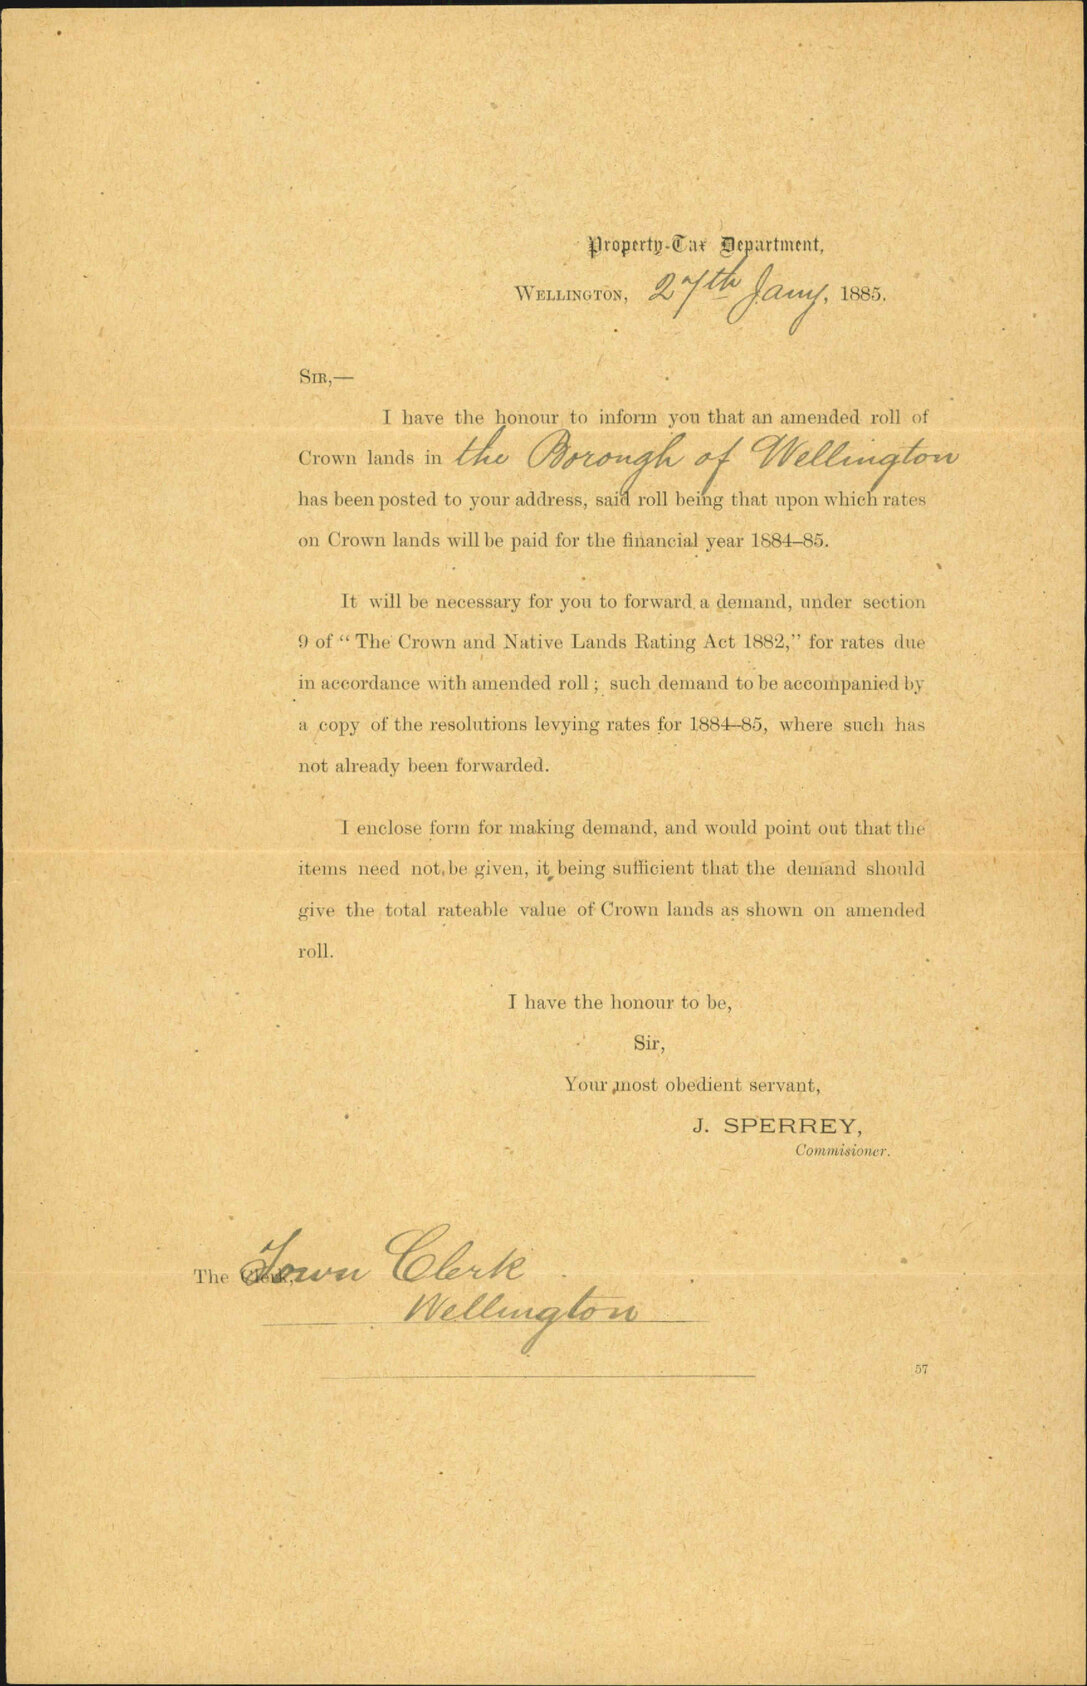 Property-Tax Department,
WELLINGTON, 27th Jany, 1885.
SIR,—
I have the honour to inform you that an amended roll of
Crown lands in the Borough of Wellington
has been posted to your address, said roll being that upon which rates
on Crown lands will be paid for the financial year 1884–85.
It will be necessary for you to forward a demand, under section
9 of “The Crown and Native Lands Rating Act 1882,” for rates due
in accordance with amended roll; such demand to be accompanied by
a copy of the resolutions levying rates for 1884–85, where such has
not already been forwarded.
I enclose form for making demand, and would point out that the
items need not be given, it being sufficient that the demand should
give the total rateable value of Crown lands as shown on amended
roll.
I have the honour to be,
Sir,
Your most obedient servant,
J. SPERREY,
Commisioner.
The Clerk, Town Clerk
Wellington
57